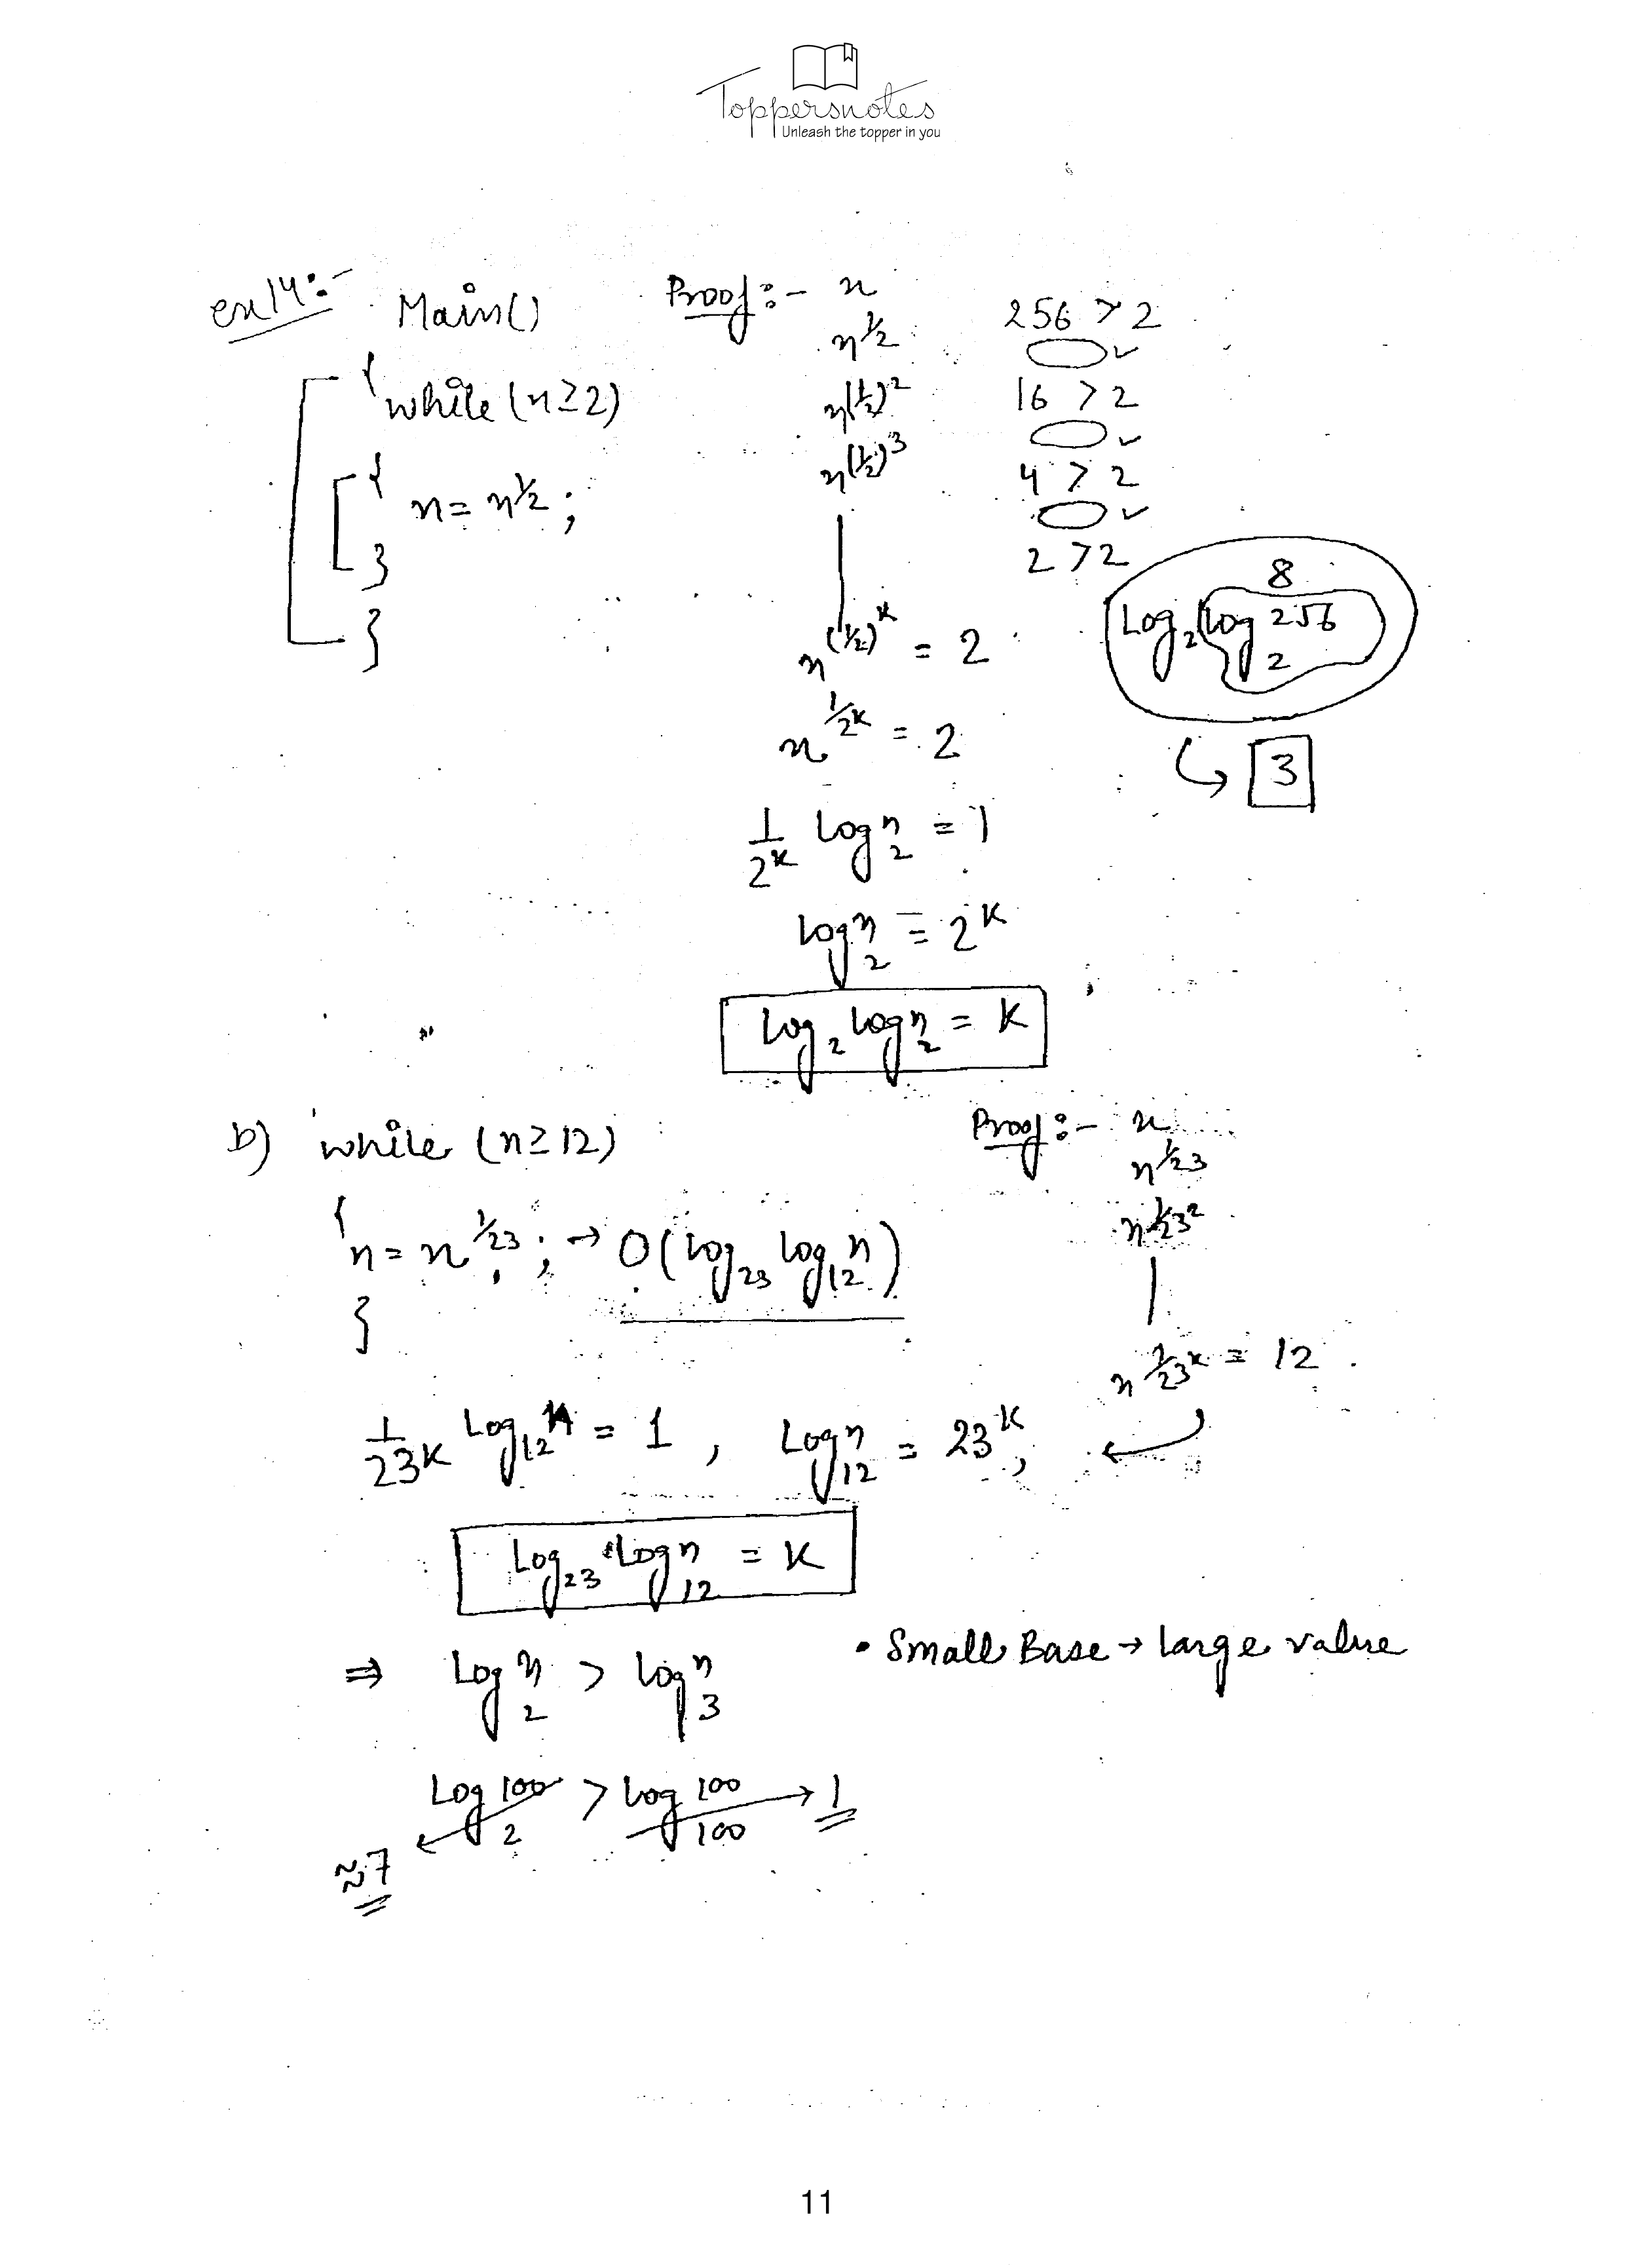 Toppersnotes
Unleash the topper in you
ex14:-
Main()
{
while (n≥2)
{
n = n^1/2 ;
}
}
Proof :- n
n^1/2
n^(1/2)^2
n^(1/2)^3
n^(1/2)^k = 2
n^1/2^k = 2
1/2^k log_2 n = 1
log_2 n = 2^k
log_2 log_2 n = k
256 > 2
✓
16 > 2
✓
4 > 2
✓
2 > 2
8
Log_2 log_2 256
↳ 3
b) while (n≥12)
{
n = n^1/23 ; → O(log_23 log_12 n)
}
Proof :- n
n^1/23
n^1/23^2
n^1/23^k = 12
1/23^k Log_12 n = 1 , Log_12 n = 23^k ; ←
Log_23 log_12 n = k
⇒ Log_2 n > log_3 n
• Small Base → large value
Log_2 100 > log_100 100 → 1
≈7
11